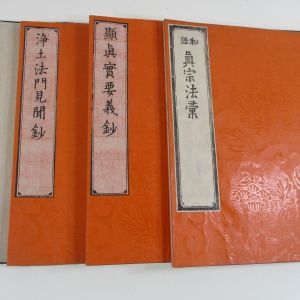 和語
眞宗法彙
顯眞實要義鈔
浄土法門見聞鈔